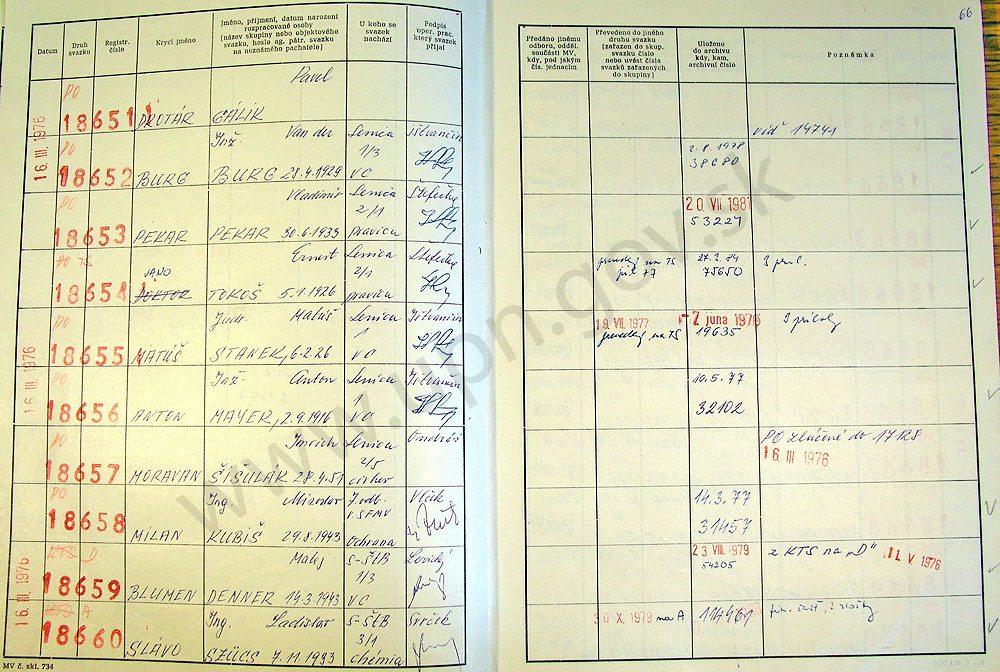 66
Datum
Druh svazku
Registr. číslo
Krycí jméno
Jméno, příjmení, datum narození
rozpracované osoby
(název skupiny nebo objektového
svazku, heslo ag. pátr. svazku
na neznámého pachatele)
U koho se
svazek
nachází
Podpis
oper. prac.
který svazek
přijal
Předáno jinému
odboru, odděl.
součásti MV,
kdy, pod jakým
čís. jednacím
Převedeno do jiného
druhu svazku
(zařazen do skup.
svazku číslo
nebo uvést čísla
svazků zařazených
do skupiny)
Uloženo
do archivu
kdy, kam,
archivní číslo
Poznámka
16. III. 1976
PO Pavel
18651 DROTÁR GÁLIK
viď 19741
PO Inž. Van der Senica Ištvančin
1/3
18652 BURG BURG 23.4.1929 VC
2.8.1978
38680
PO Vladimír Senica
2/1
18653 PEKAR PEKAR 30.6.1933 pravica
20 VII. 1981
53227
PO TS Ernest Senica
JANO 2/1
18654 DOKTOR TOKOŠ 5.1.1926 pravica
na TS 77
75650
3 príl.
16 III. 1976
PO Judr. Matúš Senica Ištvančin
1
18655 MATÚŠ STANEK, 6.2.26 VC
19. VII. 1977
na TS
-7 júna 1976
19635
PO Inž. Anton Senica Ištvančin
1
18656 ANTON MAYER, 2.9.1916 VC
10.5.77
32102
PO Imrich Senica Ondráš
2/5
18657 MORAVAN ŠIŠULÁK 28.4.51 cirkev
PO zlúčené do 17128
16 III 1976
PO Ing Miroslav 7. odb. Vlček
V. SFMV
18658 MILAN KUBIŠ 29.8.1943 Ochrana
14.3.77
31457
16 III. 1976
KTS D Matej S-ŠtB Levický
1/3
18659 BLUMEN DENNER 14.3.1943 VC
23. VIII. 1979
54205
z KTS na „D" 11. V 1976
KTS A Ing. Ladislav S-ŠtB Srček
3/1
18660 SLÁVO SZÜCS 7.11.1933 chémia
30 X. 1979 na A
MV č. skl. 734
www.upn.gov.sk